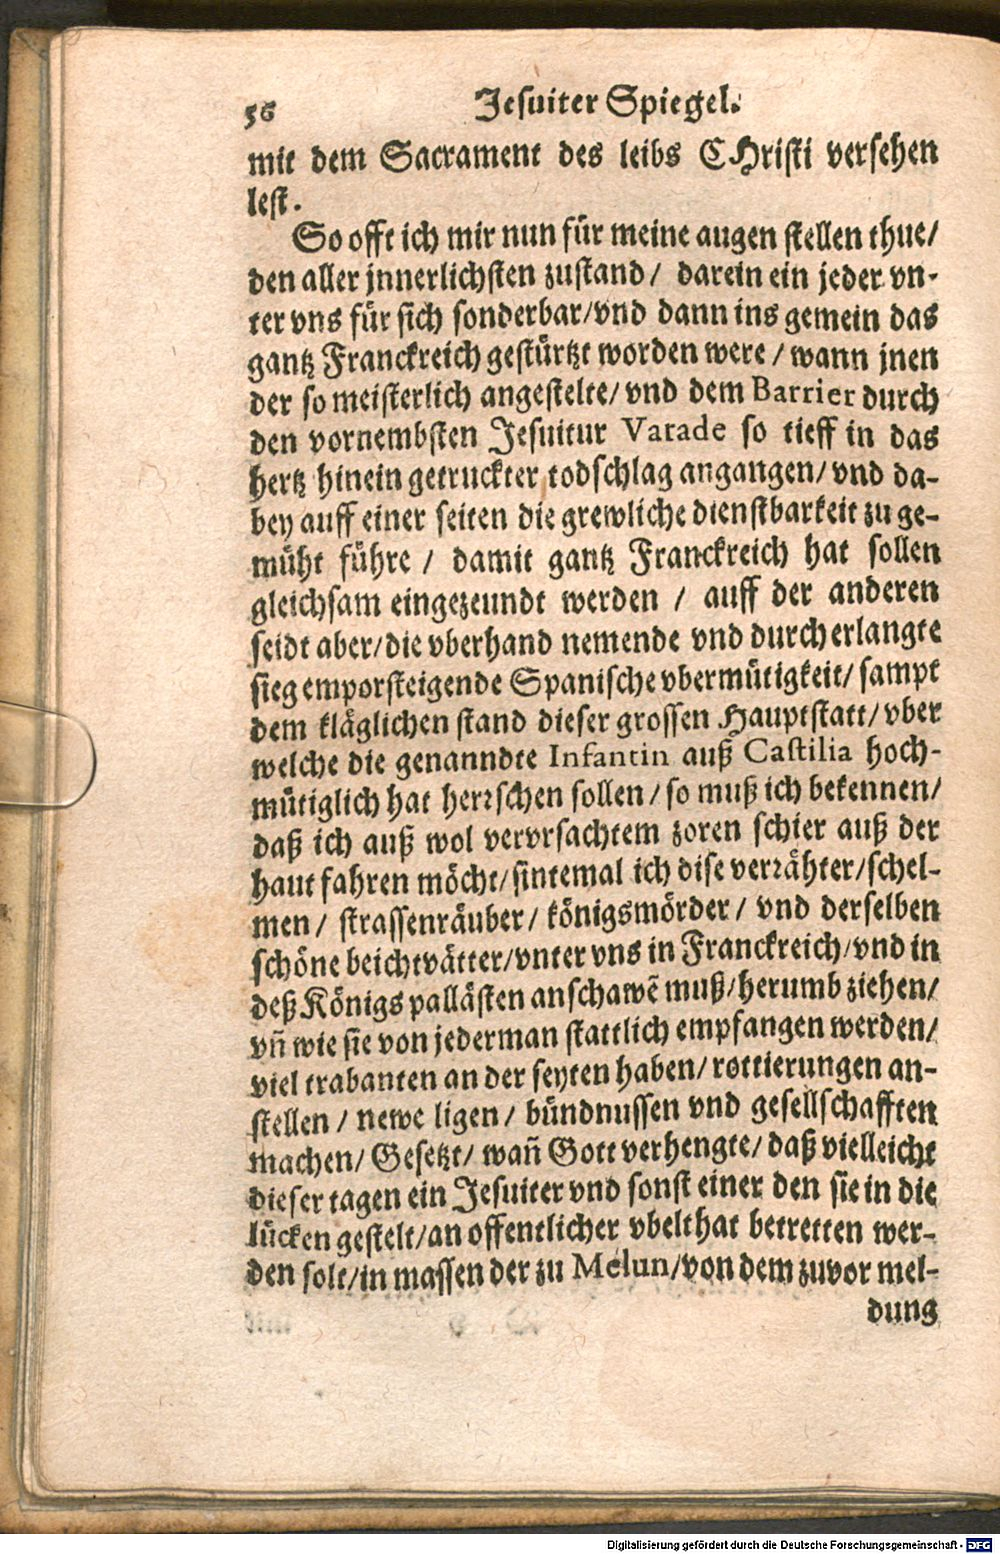 56 Jesuiter Spiegel.
mit dem Sacrament des leibs CHristi versehen
lest.
So offt ich mir nun für meine augen stellen thue/
den aller jnnerlichsten zustand/ darein ein jeder vn-
ter vns für sich sonderbar/vnd dann ins gemein das
gantz Franckreich gestürtzt worden were/wann jnen
der so meisterlich angestelte/vnd dem Barrier durch
den vornembsten Jesuitur Varade so tieff in das
hertz hinein getruckter todschlag angangen/vnd da-
bey auff einer seiten die grewliche dienstbarkeit zu ge-
müht führe / damit gantz Franckreich hat sollen
gleichsam eingezeundt werden / auff der anderen
seidt aber/die vberhand nemende vnd durch erlangte
sieg emporsteigende Spanische vbermütigkeit/sampt
dem kläglichen stand dieser grossen Hauptstatt/vber
welche die genanndte Infantin auß Castilia hoch-
mütiglich hat herrschen sollen/so muß ich bekennen/
daß ich auß wol vervrsachtem zoren schier auß der
haut fahren möcht/sintemal ich dise verrähter/schel-
men/ strassenräuber/ königsmörder/ vnd derselben
schöne beichtvätter/vnter vns in Franckreich/vnd in
deß Königs pallästen anschawẽ muß/herumb ziehen/
vñ wie sie von jederman stattlich empfangen werden/
viel trabanten an der seyten haben/rottierungen an-
stellen / newe ligen/ bündnussen vnd gesellschafften
machen/ Gesetzt/ wañ Gott verhengte/daß vielleicht
dieser tagen ein Jesuiter vnd sonst einer den sie in die
lücken gestelt/an offentlicher vbelthat betretten wer-
den solt/in massen der zu Melun/von dem zuvor mel-
dung
Digitalisierung gefördert durch die Deutsche Forschungsgemeinschaft - DFG